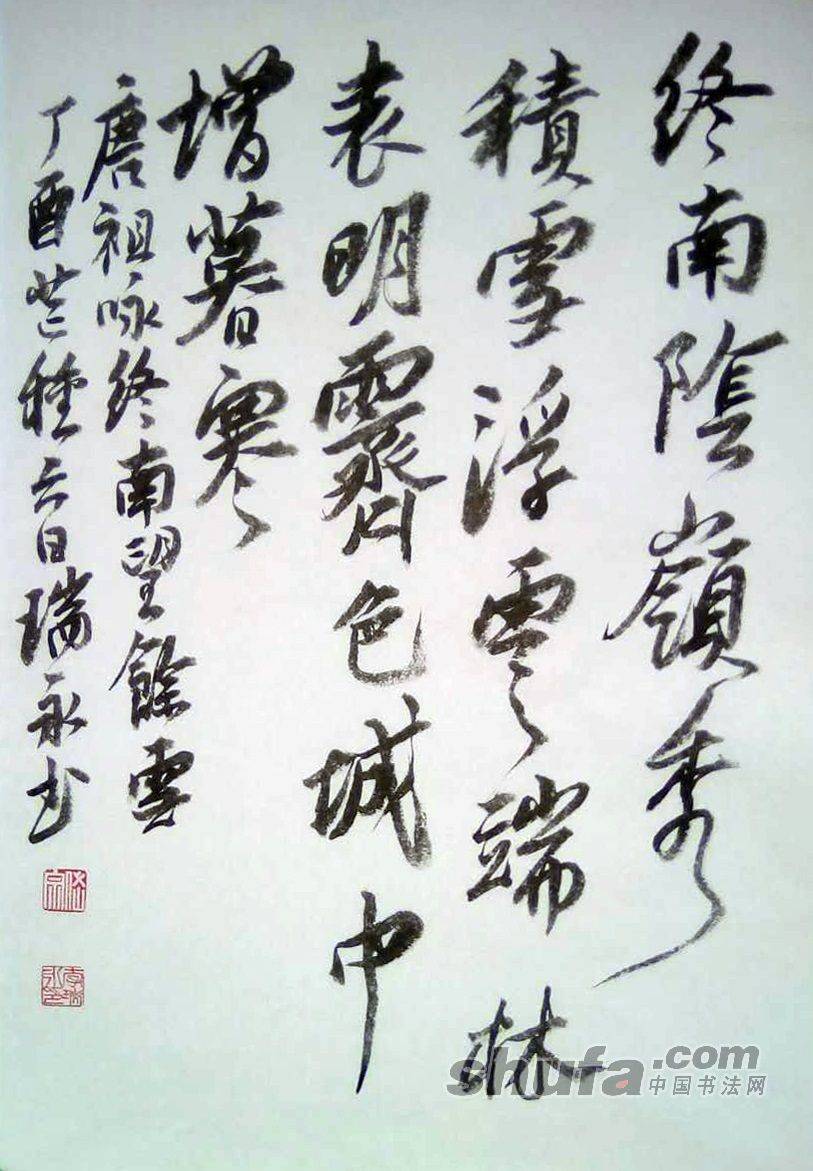 終南陰嶺秀
積雪浮雲端林
表明霽色城中
增暮寒
唐祖咏終南望餘雪
丁酉芒種六日瑞永书
shufa.com
中国书法网